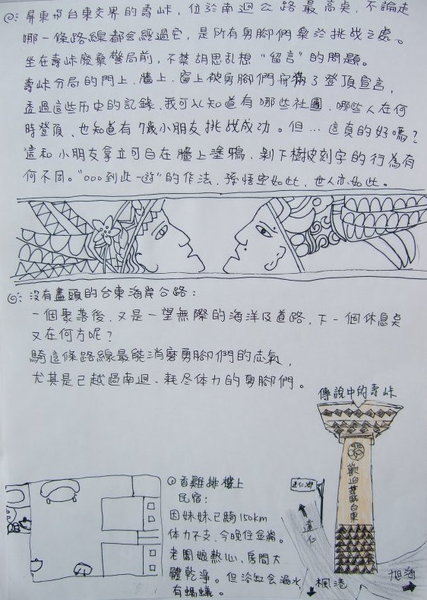 @: 屏東市台東交界的壽峠，位於南迴公路最高點，不論走
哪一條路線都會經過它，是所有勇腳們樂於挑战之處。
坐在壽峠廢棄警局前，不禁胡思乱想"留言"的問題。
壽峠分局的門上、牆上、窗上被勇腳們穿滿了登頂宣言，
透過這些历史的記錄，我可以知道有哪些社團、哪些人在何
時登頂、也知道有7歲小朋友挑战成功。但…這真的好嗎？
這和小朋友拿立可白在牆上塗鴉、剝下樹皮刻字的行為有
何不同。"ooo到此一遊"的作法，孫悟空如此，世人亦如此。
◎: 沒有盡頭的台東海岸公路：
一個聚落後，又是一望無際的海洋及道路，下一個休息点
又在何方呢？
騎這條路線最能消磨勇腳們的志氣，
尤其是已越過南迴、耗尽体力的勇腳們。
傳說中的壽峠
歡迎蒞臨台東
達仁
旭海
楓港
香雞排樓上
民宿：
因妹妹已騎150km
体力不支，今晚住金崙。
老闆娘熱心，房間大
體乾淨。但浴缸會漏水
有螞蟻。